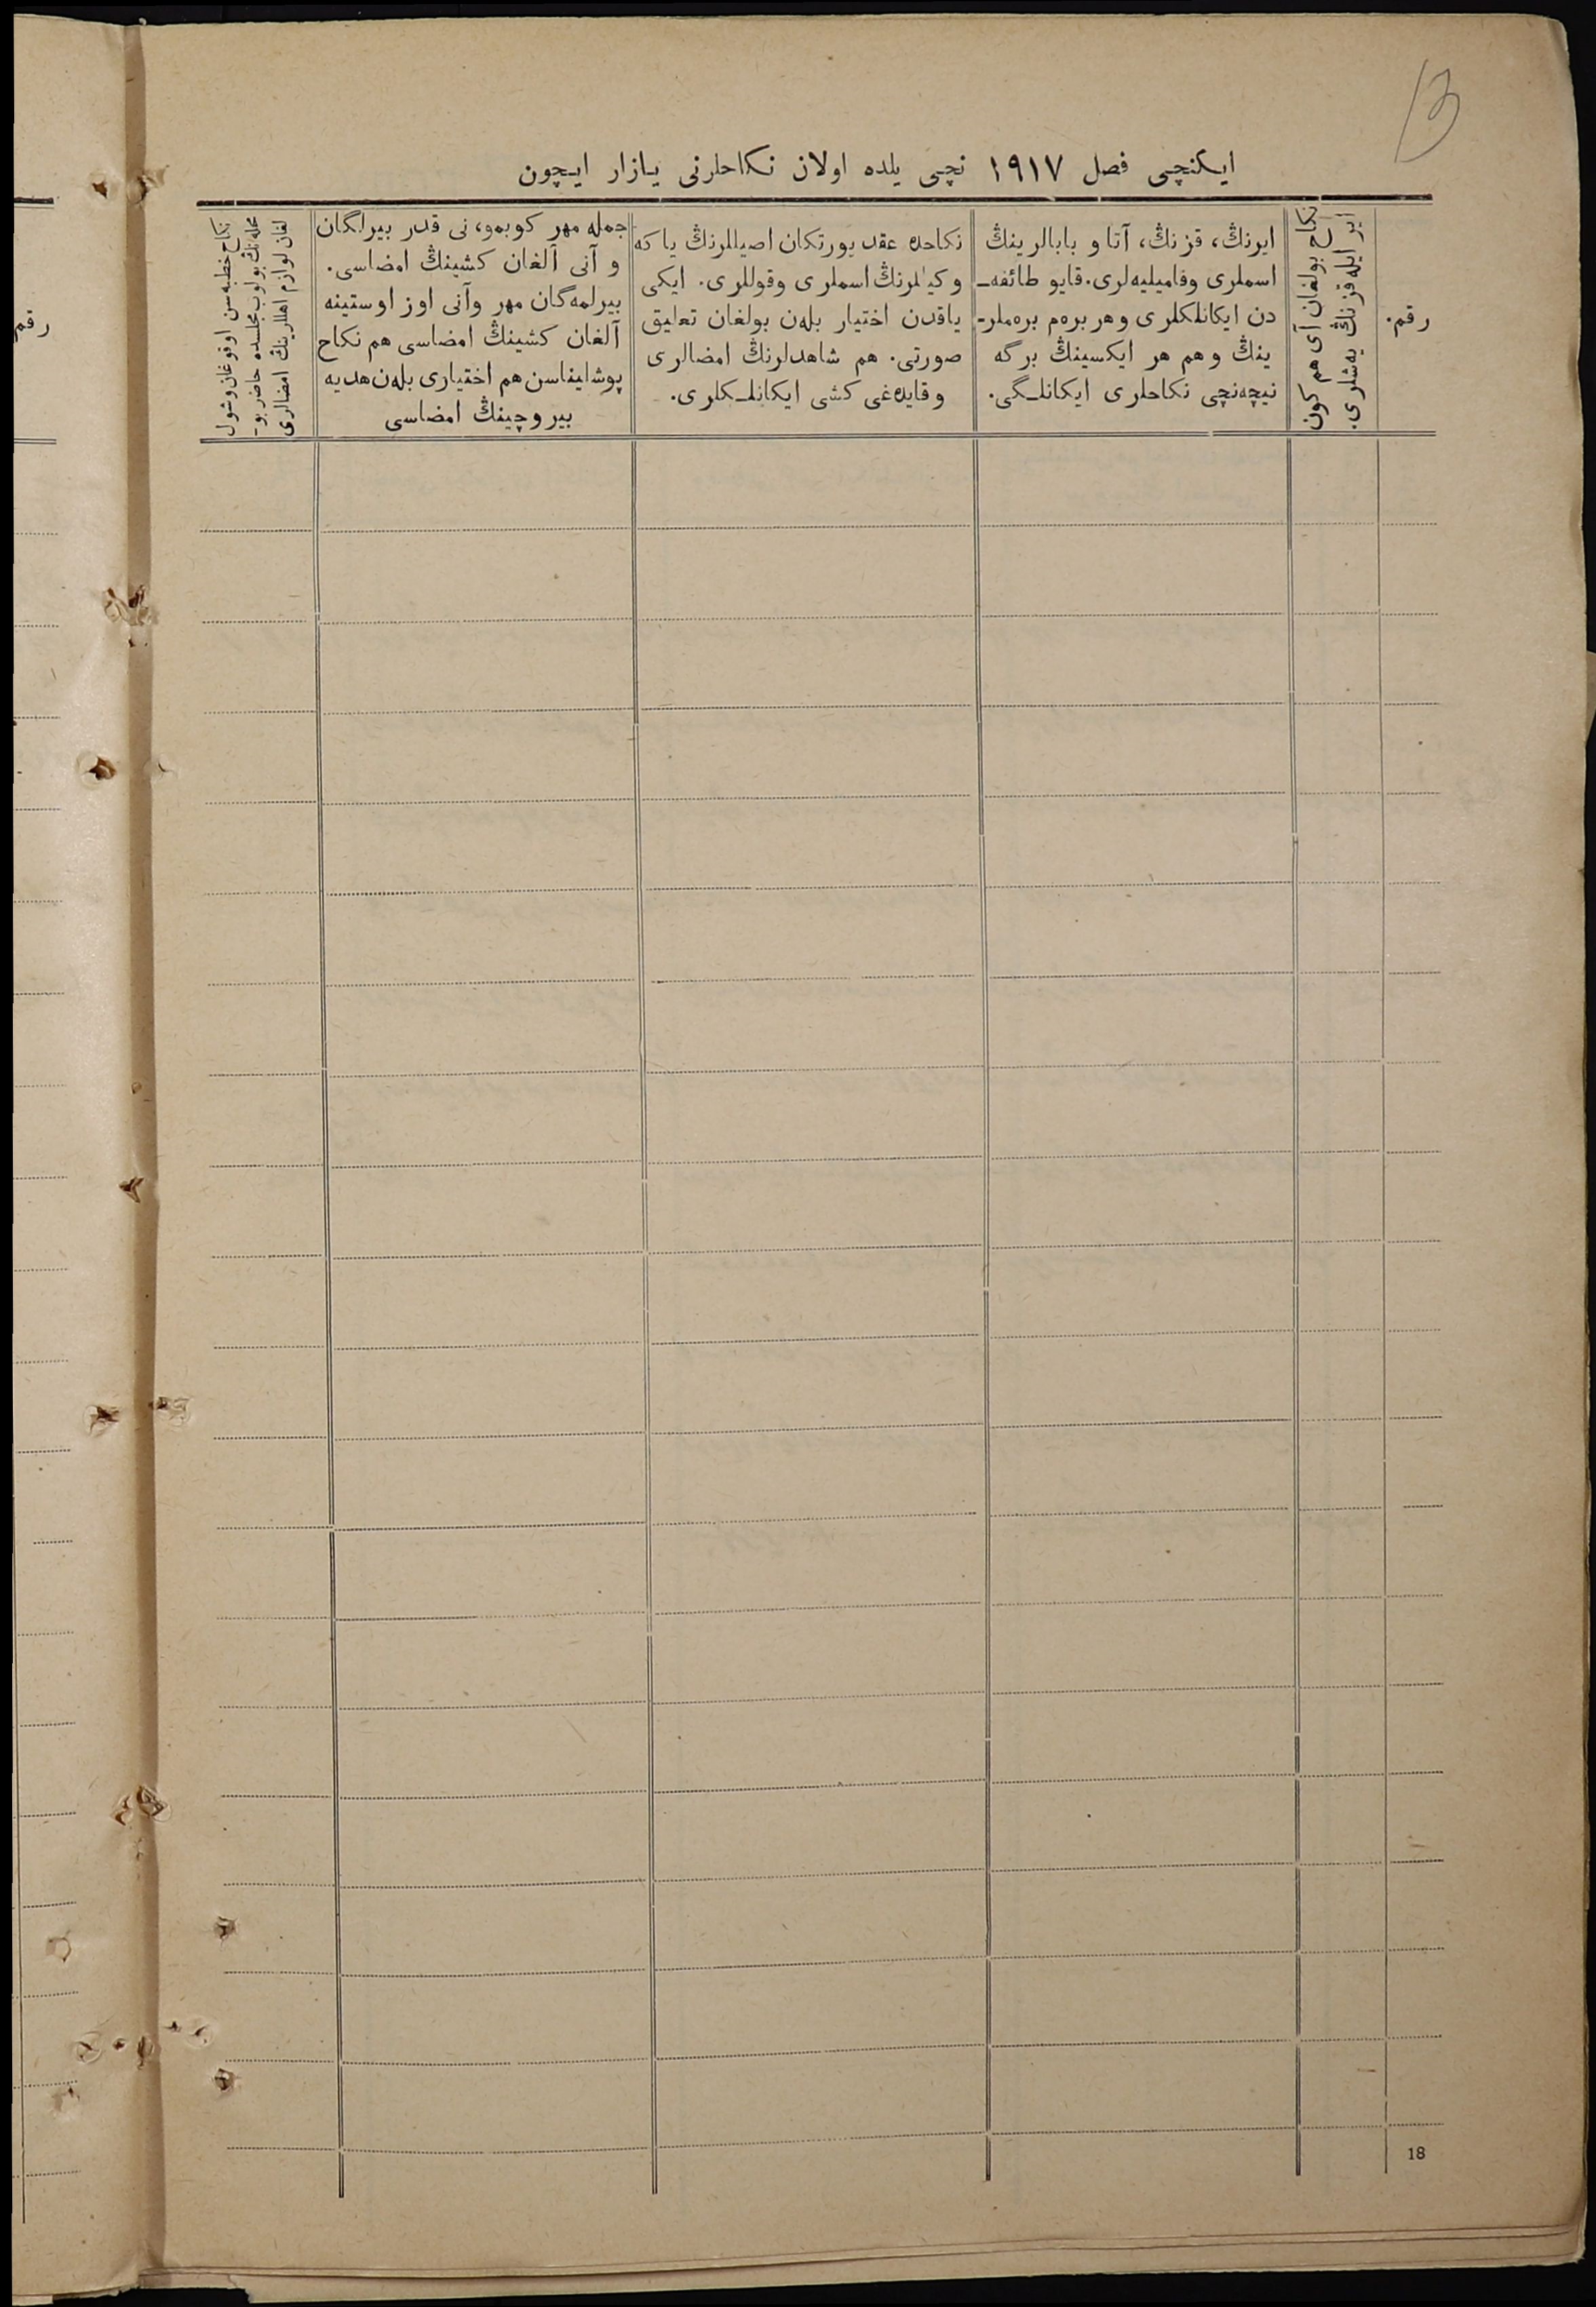 13
ایکنچی فصل ١٩١٧ نچی یلده اولان نکاحلرنی یازار ایچون
رقم.
نکاح بولغان آی هم کون
ایر ایله قزنڭ یه‌شلری.
ایرنڭ، قزنڭ، آتا و بابالرینڭ
اسملری وفامیلیه‌لری. قایو طائفه‌ـ
دن ایکانلکلری وهر بره‌م بره‌ملرـ
ینڭ وهم هر ایکسینڭ برگه
نیچه‌نچی نکاحلری ایکانلـگی.
نکاحده عقد یورتکان اصیللرنڭ یا که
وکیللرنڭ اسملری وقوللری. ایکی
یاقدن اختیار بله‌ن بولغان تعلیق
صورتی. هم شاهدلرنڭ امضالری
وقایده‌غی کشی ایکانلـکلری.
جمله مهر کوبمو، نی قدر بیرلگان
و آنی آلغان کشینڭ امضاسی.
بیرلمه‌گان مهر وآنی اوز اوستینه
آلغان کشینڭ امضاسی هم نکاح
پوشلیناسن هم اختیاری بله‌ن هدیه
بیروچینڭ امضاسی
نکاح خطبه‌سن اوقوغان وشول
محله‌نڭ بولوب مجلسده حاضر بوـ
لغان لوازم اهللرینڭ امضالری
رقم
18